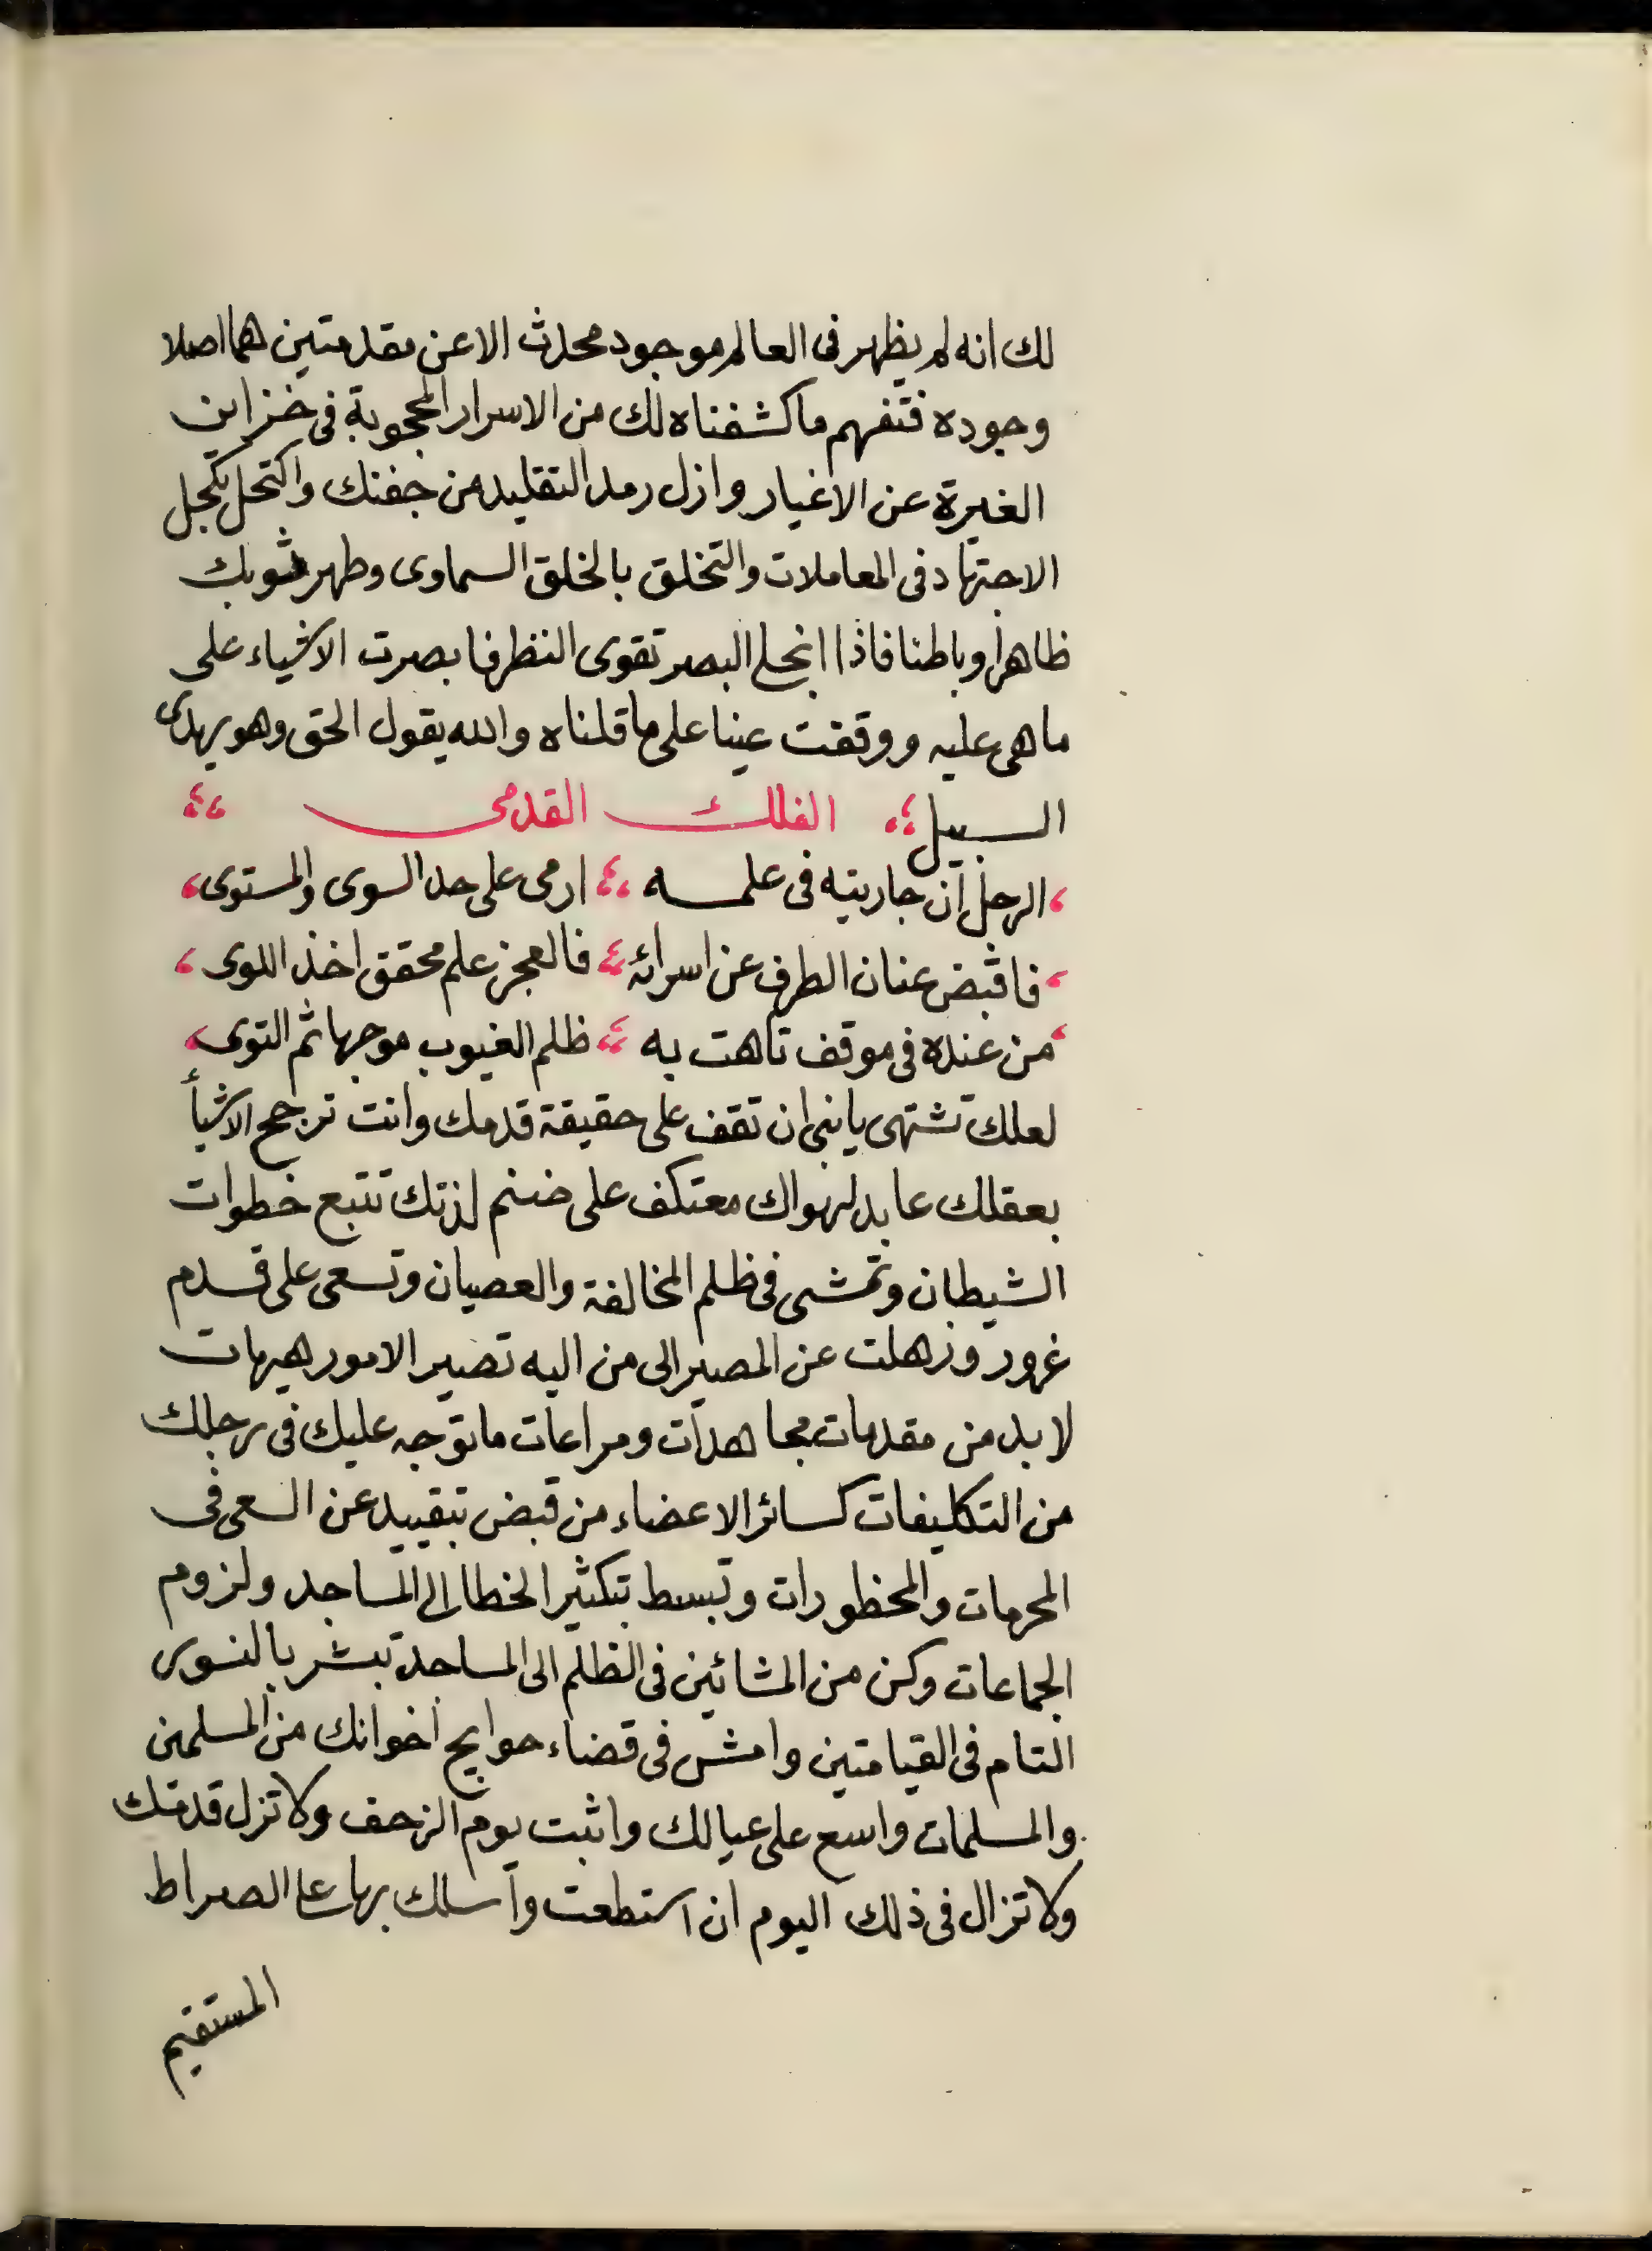 لك انه لم يظهر فى العالم موجود محدث الا عن مقدمتين هما اصلا
وجوده فتفهم ما كشفناه لك من الاسرار المحجوبة فى خزاين
الغيرة عن الاغيار وازل رمد التقليد من جفنك واكتحل بكحل
الاجتهاد فى المعاملات والتخلق بالخلق السماوى وطهر ثوبك
ظاهرا وباطنا فاذا انجلى البصر تقوى النظر فابصرت الاشياء على
ما هى عليه ووقفت عينا على ما قلناه والله يقول الحق وهو يهدى
السبيل الفلك القدمى
الرجل ان جاريته فى علمه ارمى على حد السوى والمستوى
فاقبض عنان الطرف عن اسرائه فالعجز علم محقق اخذ اللوى
من عنده فى موقف تاهت به ظلم الغيوب موجها ثم التوى
لعلك تشتهى يا بنى ان تقف على حقيقة قدمك وانت ترجح الاشيأ
بعقلك عابد لهواك معتكف على ضنم لذتك تتبع خطوات
الشيطان وتمشى فى ظلم المخالفة والعصيان وتسعى على قدم
غرور وذهلت عن المصير الى من اليه تصير الامور هيهات
لا بد من مقدمات مجاهدات ومراعات ما توجه عليك فى رجلك
من التكليفات كسائر الاعضاء من قبض بتقييد عن السعى فى
المحرمات والمحظورات وتبسط بتكثير الخطا الى المساجد ولزوم
الجماعات وكن من المشائين فى الظلم الى المساجد تبشر بالنور
التام فى القيامتين وامش فى قضاء حوايج اخوانك من المسلمين
والمسلمات واسع على عيالك واثبت يوم الزحف ولا تزل قدمك
ولا تزال فى ذلك اليوم ان استطعت واسلك بها على الصراط
المستقيم